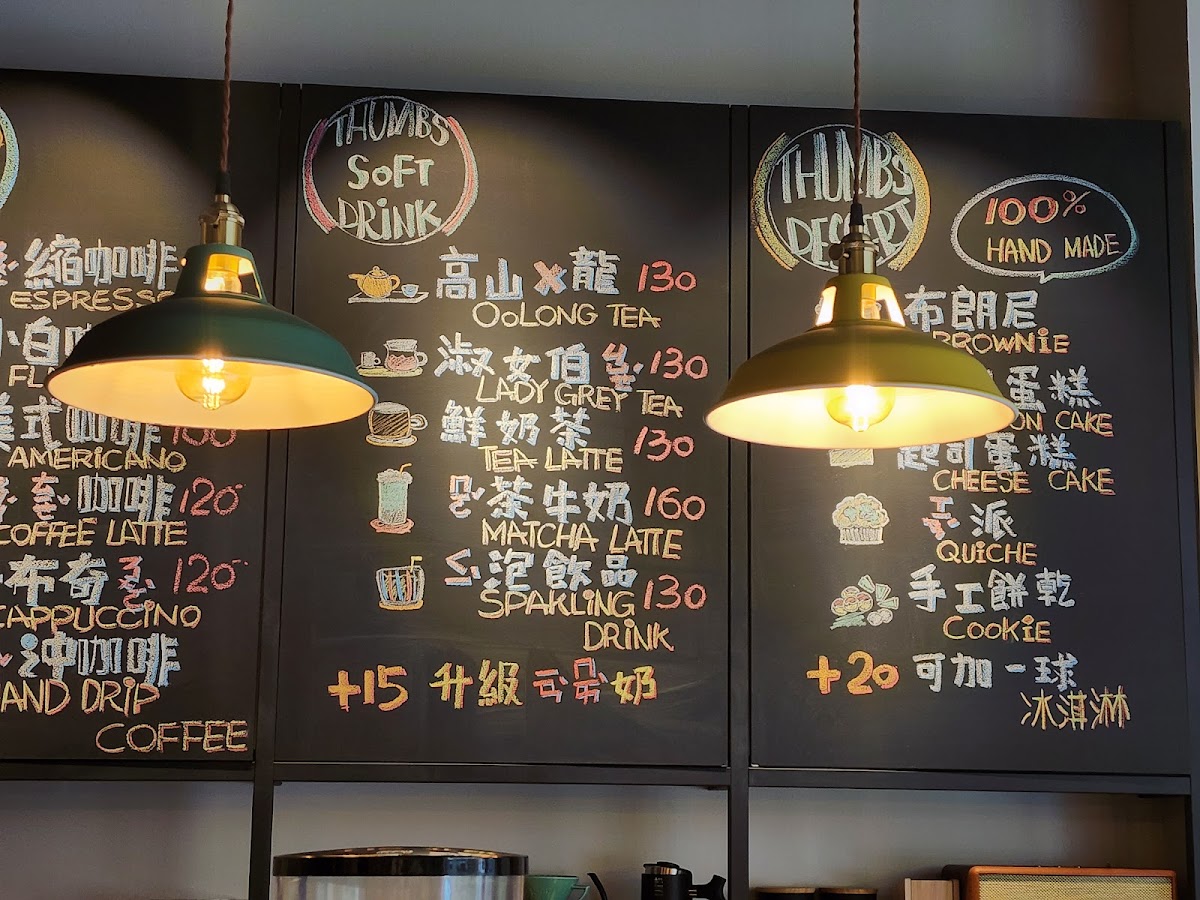 縮咖啡
ESPRESSO
小白咖
FL
美式咖啡 100
AMERICANO
咖啡 120
COFFEE LATTE
布奇 120
CAPPUCCINO
沖咖啡
HAND DRIP
COFFEE
THUMBS
SOFT
DRINK
高山ㄨ龍 130
OOLONG TEA
淑女伯 130
LADY GREY TEA
鮮奶茶 130
TEA LATTE
茶牛奶 160
MATCHA LATTE
泡飲品
SPAKLING 130
DRINK
+15 升級 奶
THUMBS
DESSERT
100%
HAND MADE
布朗尼
BROWNIE
蛋糕
ON CAKE
起司蛋糕
CHEESE CAKE
派
QUICHE
手工餅乾
COOKIE
+20 可加一球
冰淇淋